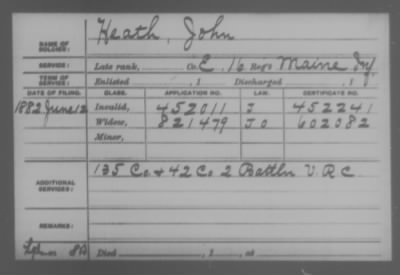 NAME OF SOLDIER: Heath, John
SERVICE: Late rank, Co. E, 16 Reg't Maine Inf.
TERM OF SERVICE: Enlisted , 1 Discharged , 1
DATE OF FILING. CLASS. APPLICATION NO. LAW. CERTIFICATE NO.
1882 June 12 Invalid, 452011 J 452241
Widow, 821479 J O 602082
Minor,
ADDITIONAL SERVICES: 135 Co. & 42 Co. 2 Battln V. R. C.
REMARKS:
Died , 1 , at